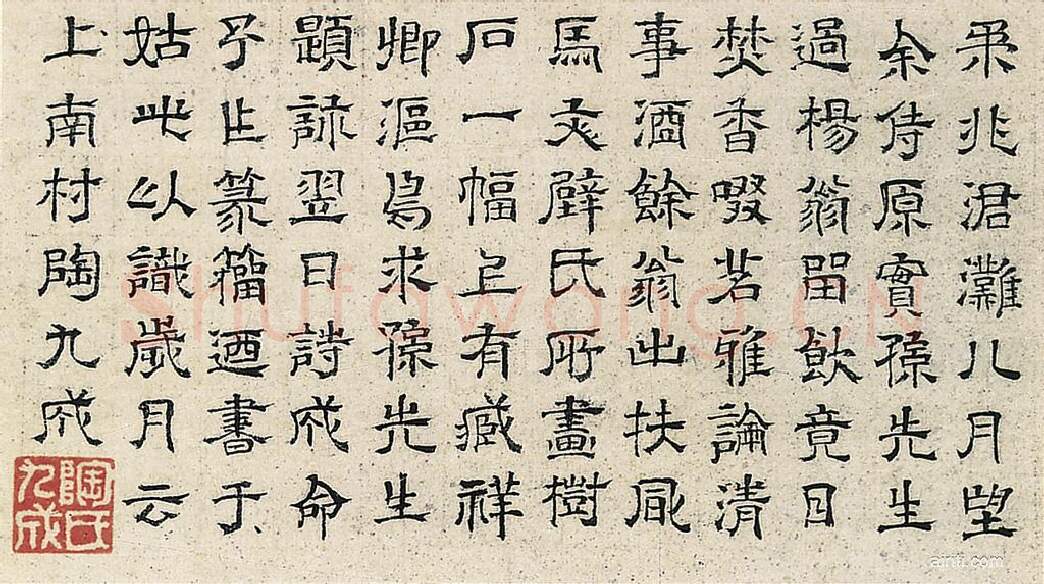 柔兆涒灘八月望
余侍原實孫先生
過楊翁留飲竟日
焚香啜茗雅論清
事酒餘翁出扶風
馬文璧氏所畫樹
石一幅上有臧祥
卿漚鳥求孫先生
題詠翌日詩成命
予作篆籀迺書于
姑此以識歲月云
上南村陶九成
陶氏九成
shufawang.CN